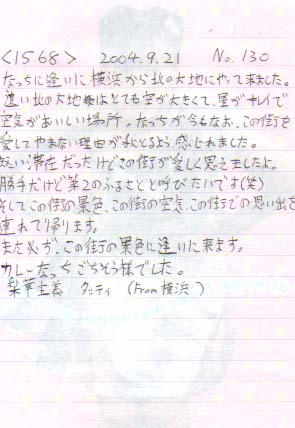 <1568> 2004.9.21 No.130
なっちに逢いに横浜から北の大地にやって来ました。
遠い北の大地はとても空が大きくて、星がキレイで
空気がおいしい場所。なっちが今もなお、この街を
愛してやまない理由が私とるよう感じれました。
短い滞在だったけどこの街が愛しく思えましたよ。
勝手だけど第2のふるさとと呼びたいです(笑)
そしてこの街の景色、この街の空気、この街での思い出を
連れて帰ります。
また必ず、この街の景色に逢いに来ます。
カレーなっちごちそう様でした。
梨華主義 タッティ (From横浜)